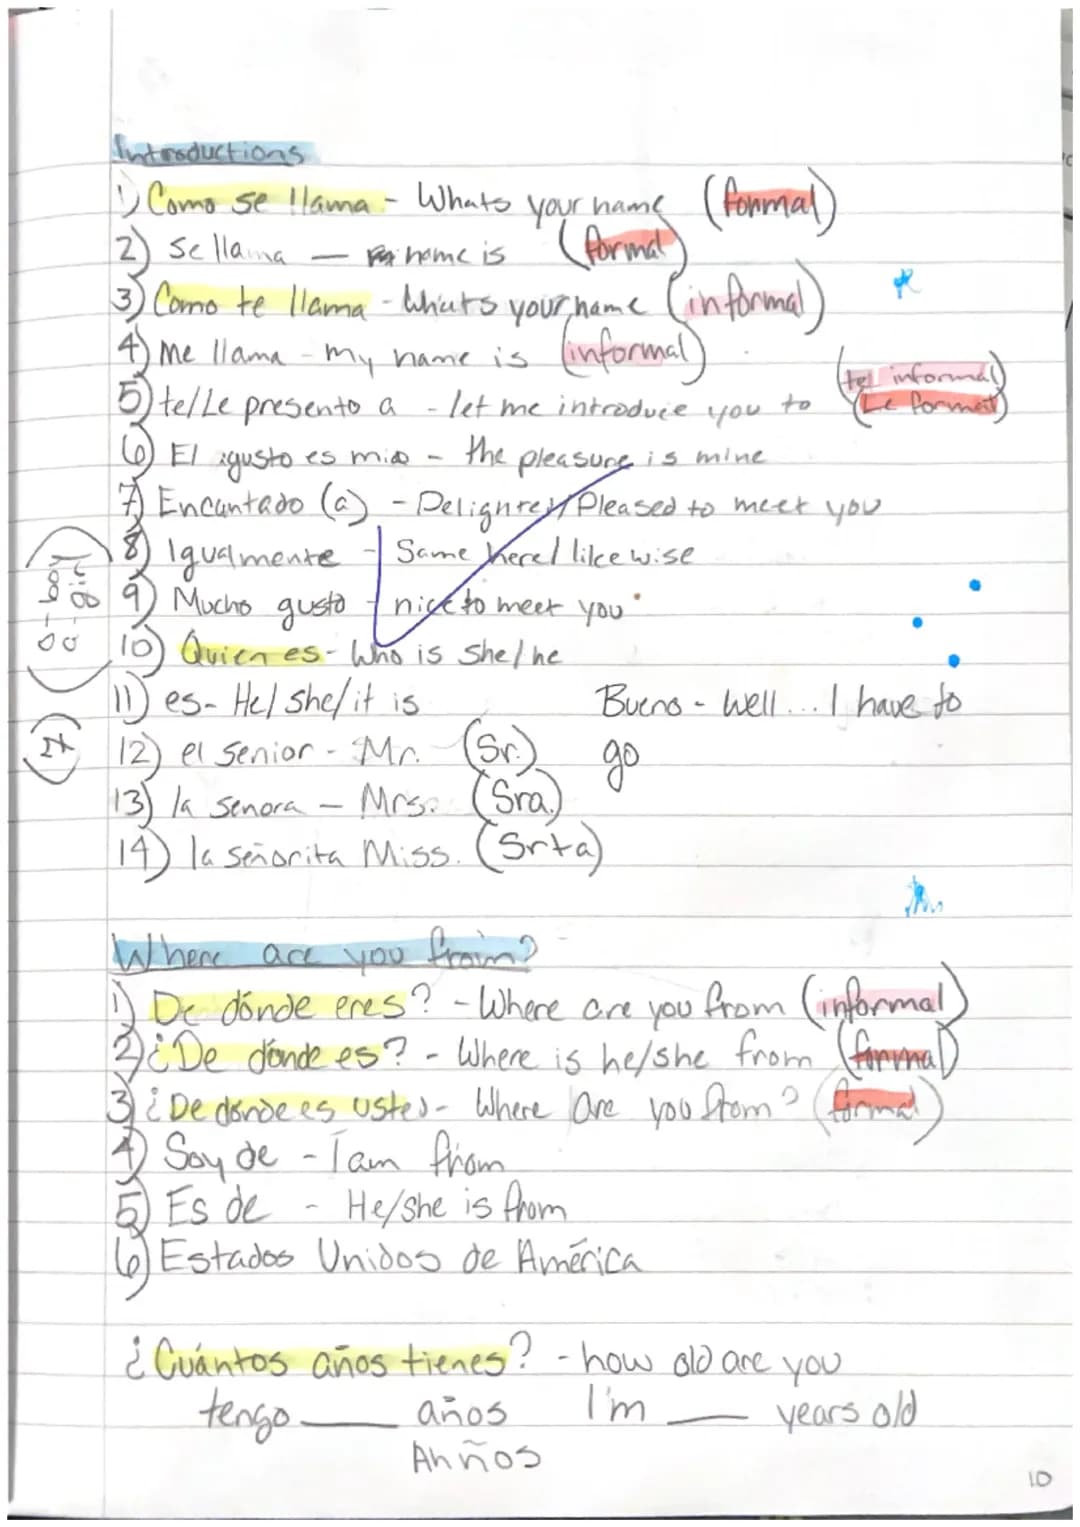 Introductions
1) Como se llama - Whats your name (formal)
2) Se llama — name is (formal)
3) Como te llama - Whats your name (informal)
4) Me llama - my name is (informal)
(te informal)
5) te/Le presento a - let me introduce you to (Le formal)
6) El gusto es mio - the pleasure is mine
7) Encantado (a) - Delighted/Pleased to meet you
8) Igualmente - Same here/likewise
9) Mucho gusto - nice to meet you
10) Quien es - Who is she/he
11) es - He/she/it is
Bueno - Well... I have to go
12) el senior - Mr. (Sr.)
13) la senora - Mrs. (Sra.)
14) la señorita Miss. (Srta)
Where are you from?
1) De dónde eres? - Where are you from (informal)
2) ¿De dónde es? - Where is he/she from (formal)
3) ¿De dónde es usted - Where are you from? (formal)
4) Soy de - I am from
5) Es de - He/she is from
6) Estados Unidos de América
¿Cuántos años tienes? - how old are you
tengo ____ años I'm ____ years old
Ahños
10